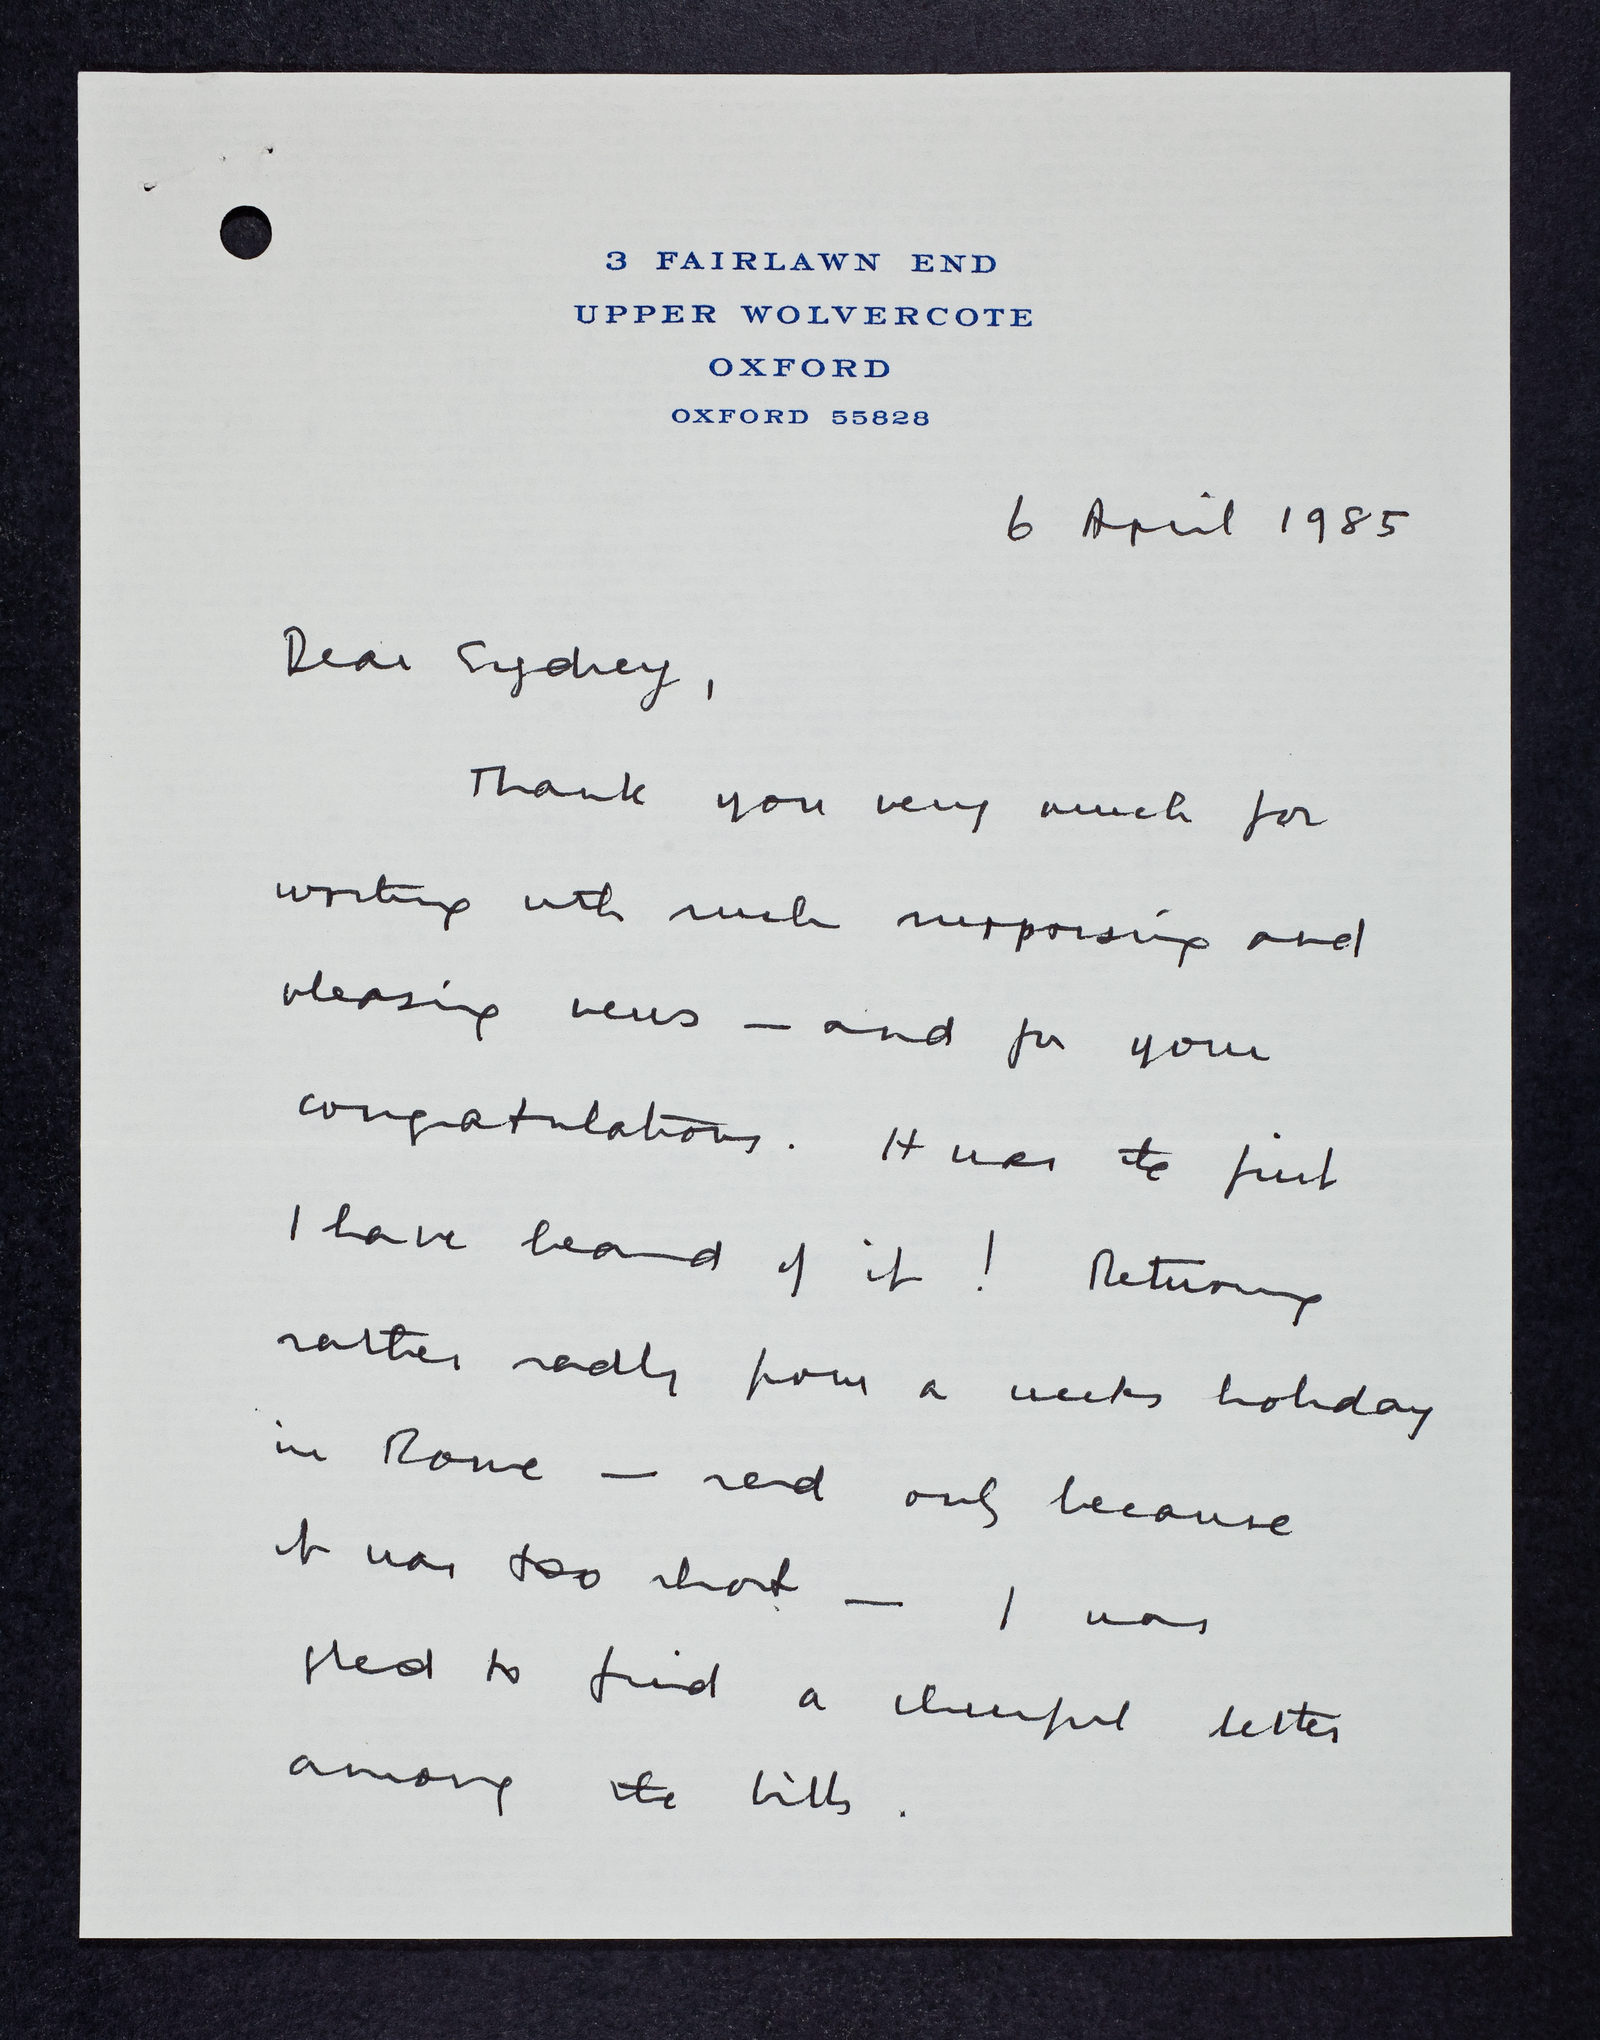 3 FAIRLAWN END
UPPER WOLVERCOTE
OXFORD
OXFORD 55828
6 April 1985
Dear Sydney,
Thank you very much for
writing with such surprising and
pleasing news — and for your
congratulations. It was the first
I have heard of it! Returning
rather sadly from a weeks holiday
in Rome — sad only because
it was too short — I was
glad to find a cheerful letter
among the bills.